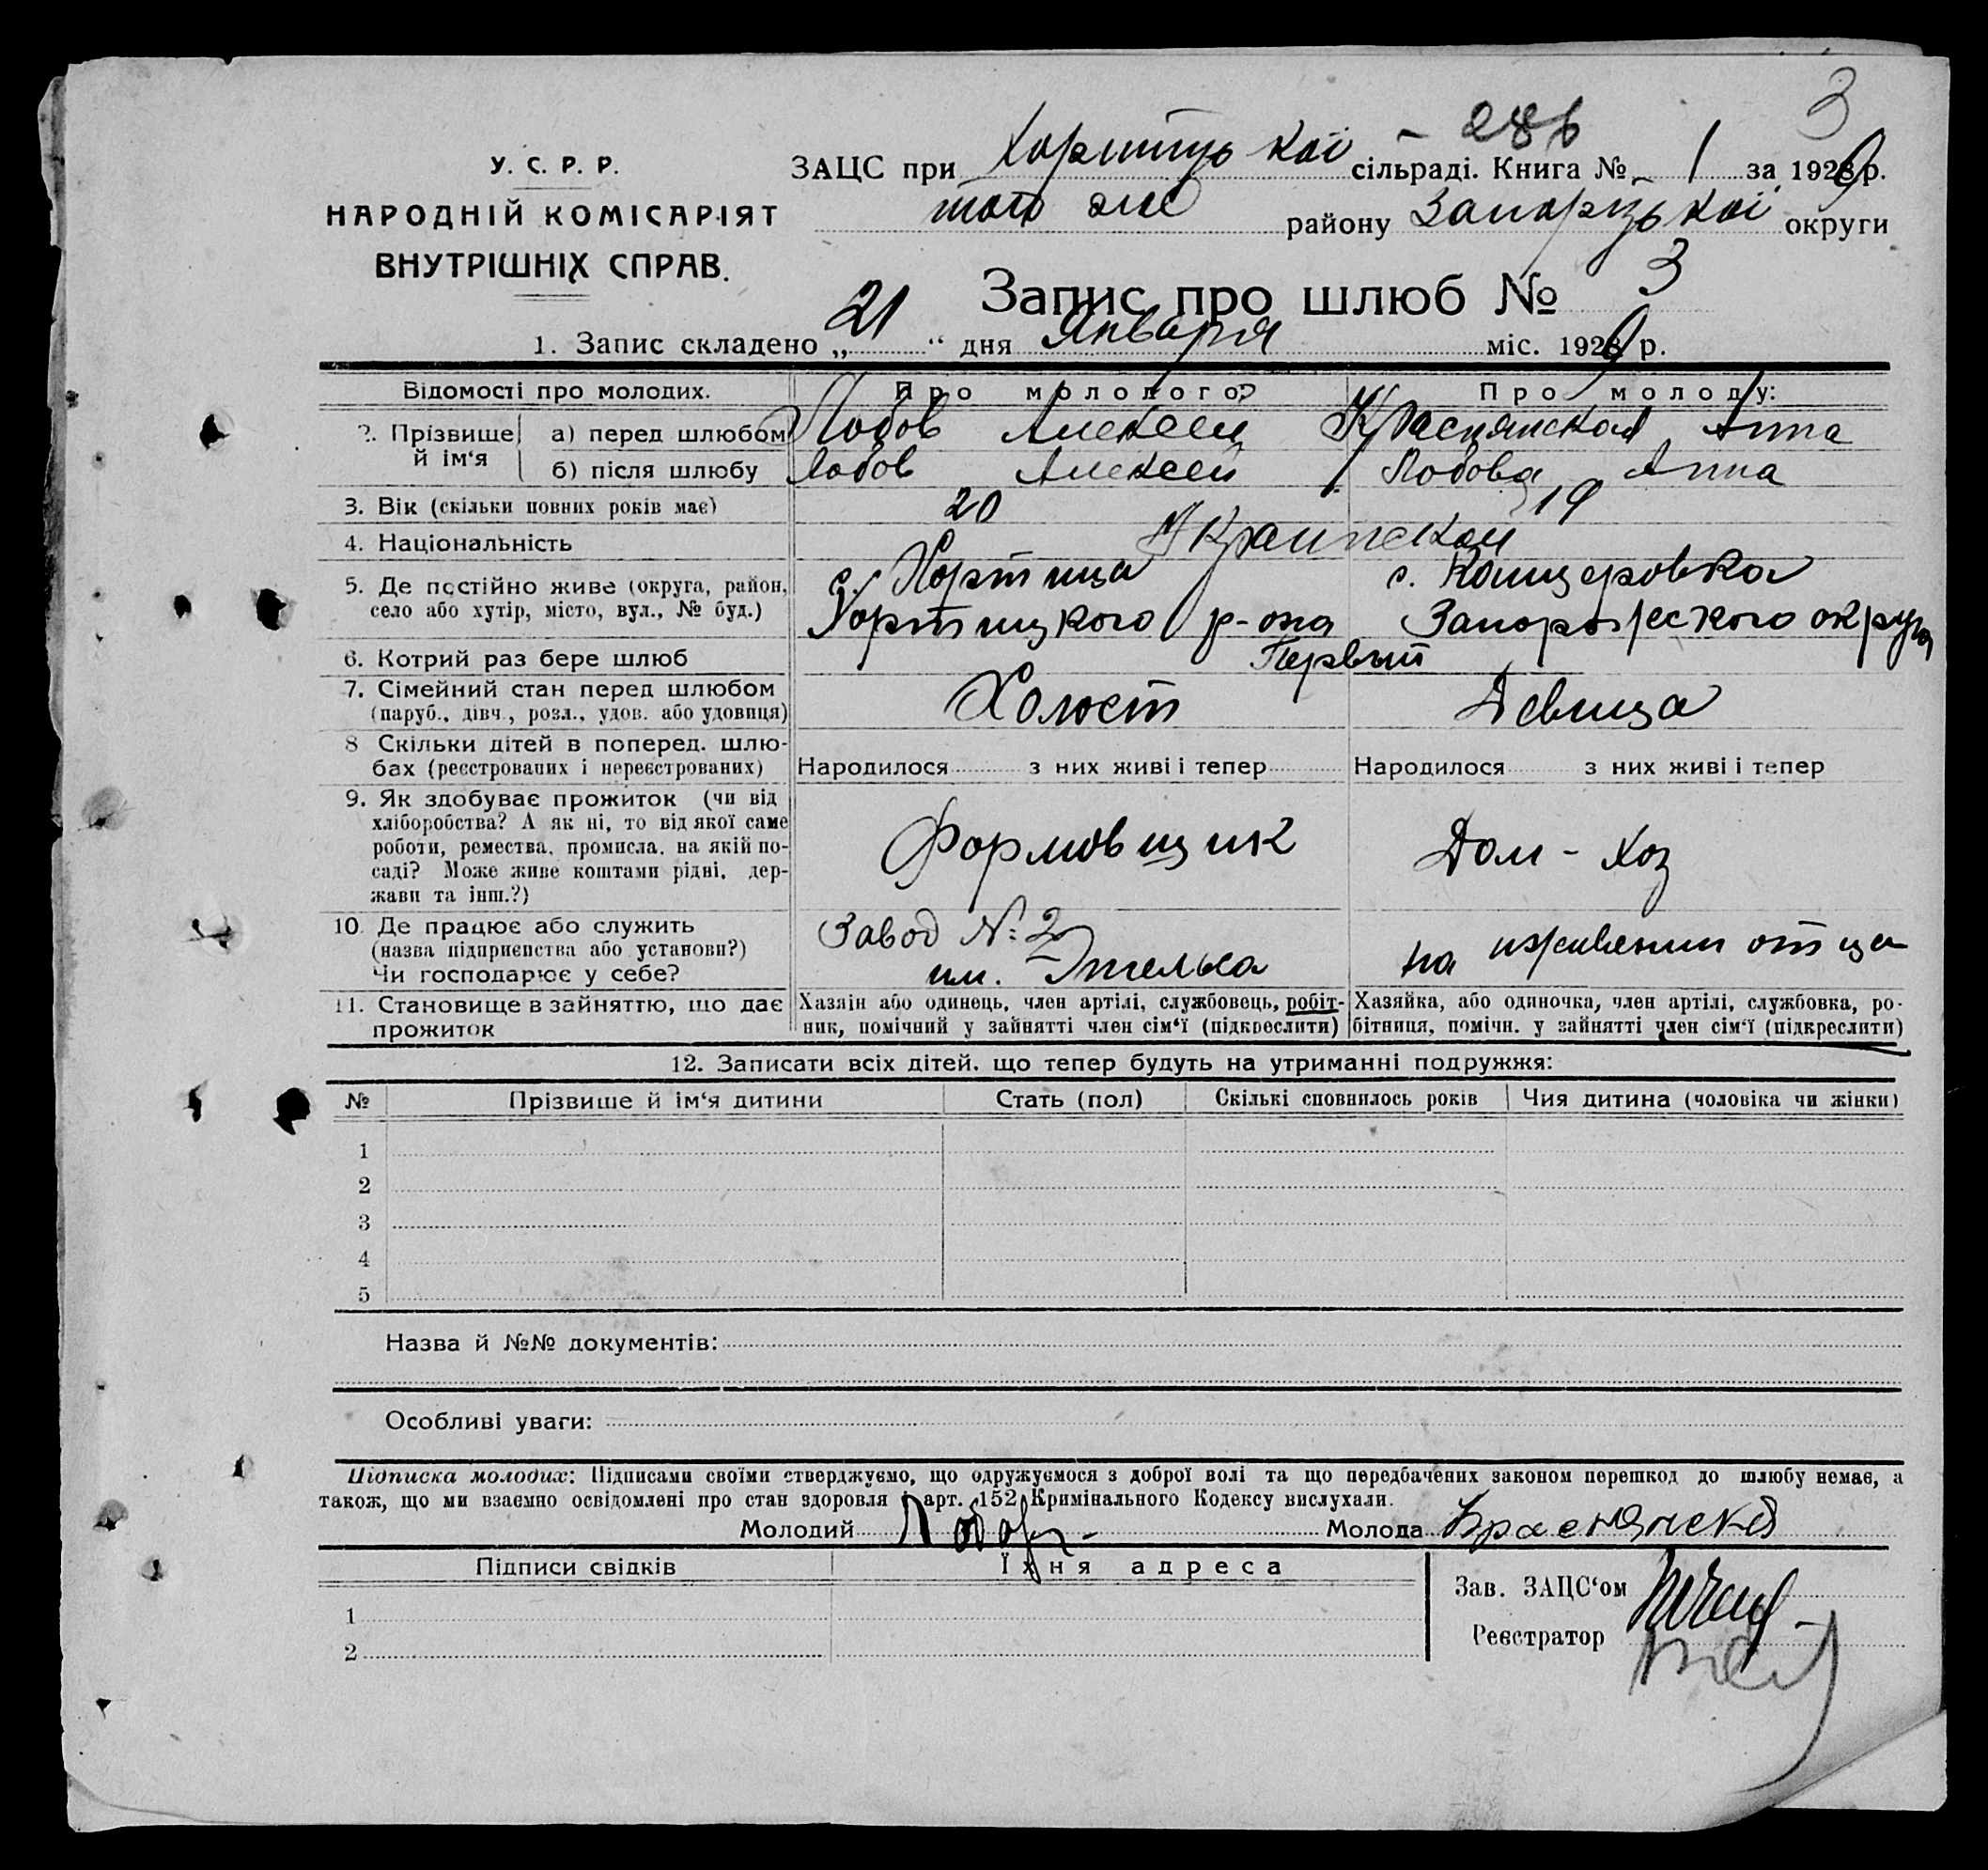 3
286
У. С. Р. Р.
НАРОДНІЙ КОМІСАРІЯТ
ВНУТРІШНІХ СПРАВ.
ЗАЦС при Хортицької сільраді. Книга № 1 за 1929 р.
того же району Запорізької округи
Запис про шлюб № 3
1. Запис складено „21“ дня Января міс. 1929 р.
Відомості про молодих. Про молодого: Про молоду:
2. Прізвище й ім‘я а) перед шлюбом Лобов Алексей Краснянская Анна
б) після шлюбу Лобов Алексей Лобова Анна
3. Вік (скільки повних років має) 20 19
4. Національність Украинской
5. Де постійно живе (округа, район, с. Хортица с. Канцеровка
село або хутір, місто, вул., № буд.) Хортицкого р-она Запорожского округа
6. Котрий раз бере шлюб Первый
7. Сімейний стан перед шлюбом Холост Девица
(паруб., дівч., розл., удов. або удовиця)
8 Скільки дітей в поперед. шлю-
бах (реєстрованих і нереєстрованих) Народилося з них живі і тепер Народилося з них живі і тепер
9. Як здобуває прожиток (чи від
хліборобства? А як ні, то від якої саме
роботи, ремества, промисла, на якій по- Формовщик Дом - хоз
саді? Може живе коштами рідні, дер-
жави та інш.?)
10. Де працює або служить Завод №: 2
(назва підприємства або установи?) на иждивении отца
Чи господарює у себе? им. Энгельса
11. Становище в зайняттю, що дає Хазяїн або одинець, член артілі, службовець, робіт- Хазяйка, або одиночка, член артілі, службовка, ро-
прожиток ник, помічний у зайнятті член сім‘ї (підкреслити) бітниця, помічн. у зайнятті член сім‘ї (підкреслити)
12. Записати всіх дітей, що тепер будуть на утриманні подружжя:
№ Прізвище й ім‘я дитини Стать (пол) Скількі сповнилось років Чия дитина (чоловіка чи жінки)
1
2
3
4
5
Назва й №№ документів:
Особливі уваги:
Підписка молодих: Підписами своїми стверджуємо, що одружуємося з доброї волі та що передбачених законом перешкод до шлюбу немає, а
також, що ми взаємно освідомлені про стан здоровля і арт. 152 Кримінального Кодексу вислухали.
Молодий Лобов Молода Краснянская
Підписи свідків Їхня адреса
Зав. ЗАЦС‘ом
1
Реєстратор
2